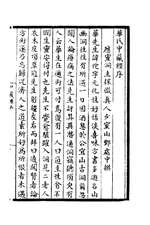 華氏中藏經序
應靈洞主探微真人少室山鄧處中撰
華先生諱佗字元化性好恬淡喜味方書多遊名山
幽洞往往有所遇一日因酒息於公宜山古洞前忽
聞人論療病之法先生訝其異潛逼洞竊聽須臾有
人云華生在邇術可付焉復有一人曰道生性貪不
憫生靈安得付也先生不覺愈駭躍入洞見二老人
衣木皮頂草冠先生躬趨左右而拜曰適聞賢者論
方術遂乃忘歸況濟人之道素所好為所恨者未遇